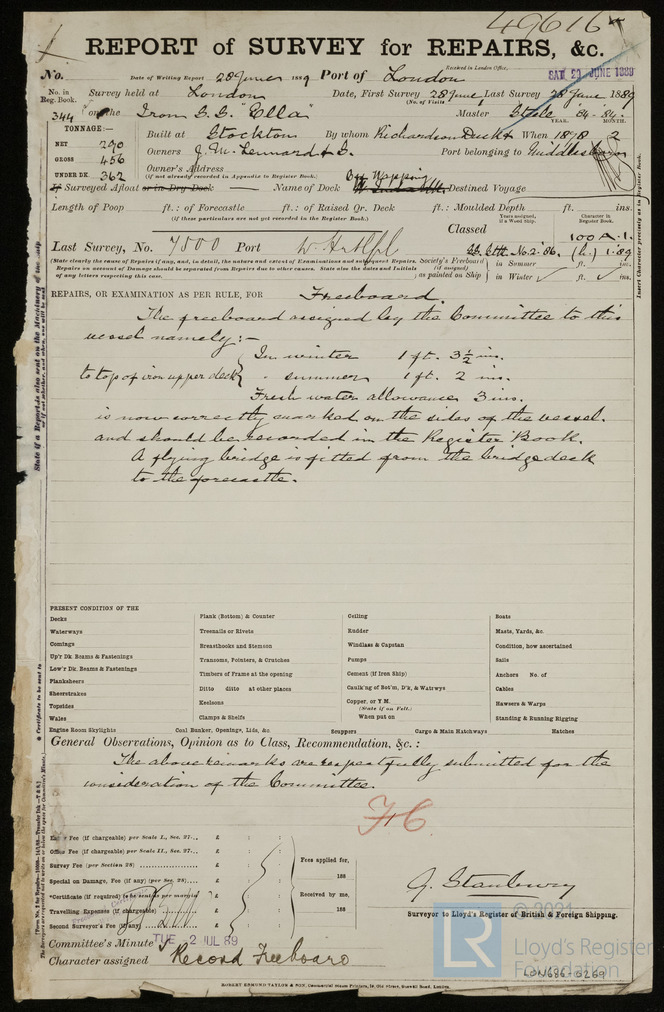 49616
REPORT of SURVEY for REPAIRS, &c.
Received in London Office,
No. Date of Writing Report 28 June 1889 Port of London SAT. 29 JUNE 1889
No. in Reg. Book. Survey held at London Date, First Survey 28 June Last Survey 28 June 1889
(No. of Visits)
344 on the Iron S.S. "Ella" Master Steele YEAR. '84-'84. MONTH.
TONNAGE:—
NET 290
GROSS 456
UNDER DK. 362
Built at Stockton By whom Richardson Duck & When 1878 2
Owners J. M. Lennard & S. Port belonging to Middlesboro
Owner's Address
(If not already recorded in Appendix to Register Book.)
If Surveyed Afloat or in Dry Dock Name of Dock Off Wapping Destined Voyage
Length of Poop ft.: of Forecastle ft.: of Raised Qr. Deck ft.: Moulded Depth ft. ins.
(If these particulars are not yet recorded in the Register Book.)
Years assigned, if a Wood Ship.
Character in Register Book.
Classed 100 A.1.
Last Survey, No. 7800 Port W. Hrtlpl No. 2-'86. 1-89
(State clearly the cause of Repairs if any, and, in detail, the nature and extent of Examinations and subsequent Repairs. Repairs on account of Damage should be separated from Repairs due to other causes. State also the dates and Initials of any letters respecting this case.
Society's Freeboard (if assigned) as painted on Ship
in Summer ft. ins.
in Winter ft. ins.
Insert Character precisely as in Register Book.
REPAIRS, OR EXAMINATION AS PER RULE, FOR Freeboard.
The freeboard assigned by the Committee to this
vessel namely:-
In winter 1 ft. 3½ ins.
to top of iron upper deck " summer 1 ft. 2 ins.
Fresh water allowance 3 ins.
is now correctly marked on the sides of the vessel.
and should be recorded in the Register Book.
A flying bridge is fitted from the bridge deck
to the forecastle.
PRESENT CONDITION OF THE
Decks
Waterways
Comings
Up'r Dk. Beams & Fastenings
Low'r Dk. Beams & Fastenings
Planksheers
Sheerstrakes
Topsides
Wales
Engine Room Skylights
Plank (Bottom) & Counter
Treenails or Rivets
Breasthooks and Stemson
Transoms, Pointers, & Crutches
Timbers of Frame at the opening
Ditto ditto at other places
Keelsons
Clamps & Shelfs
Coal Bunker, Openings, Lids, &c.
Ceiling
Rudder
Windlass & Capstan
Pumps
Cement (if Iron Ship)
Caulk'ng of Bot'm, D'k, & Watrwys
Copper, or Y M.
(State if on Felt.)
When put on
Scuppers
Cargo & Main Hatchways
Boats
Masts, Yards, &c.
Condition, how ascertained
Sails
Anchors No. of
Cables
Hawsers & Warps
Standing & Running Rigging
Hatches
General Observations, Opinion as to Class, Recommendation, &c. :
The above remarks are respectfully submitted for the
consideration of the Committee.
Entry Fee (if chargeable) per Scale I., Sec. 27... £ : :
Office Fee (if chargeable) per Scale II., Sec. 27... £ : :
Survey Fee (per Section 28) £ : :
Special on Damage, Fee (if any) (per Sec. 28)... £ : :
*Certificate (if required) to be sent as per margin £ : :
Travelling Expenses (if chargeable) £ : :
Second Surveyor's Fee (if any) £ : :
Fees applied for,
188
Received by me,
188
G. Stanbury
Surveyor to Lloyd's Register of British & Foreign Shipping.
Committee's Minute TUE 2 JUL 89
Character assigned Record Freeboard
© 2021
LR
Lloyd's Register
Foundation
LON686-0269
ROBERT EDMUND TAYLOR & SON, Commercial Steam Printers, 19, Old Street, Goswell Road, London.